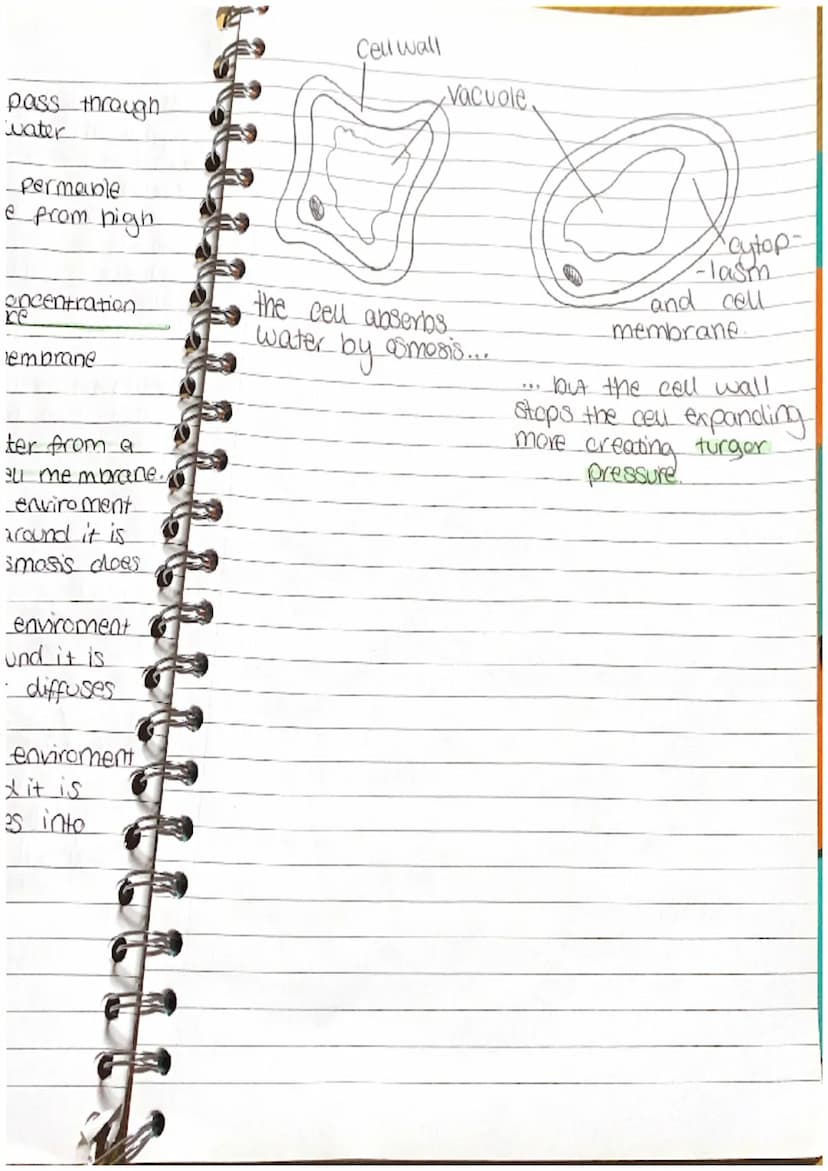 pass through
water
permeable
e from high
oncentration
embrane
ter from a
ell membrane.
enviroment
around it is
smosis does
enviroment
und it is
diffuses
enviroment
d it is
es into
Cell wall
vacuole
cytop-
-lasm
and cell
membrane.
the cell absorbs
water by osmosis...
... but the cell wall
stops the cell expanding
more creating turgor
pressure.